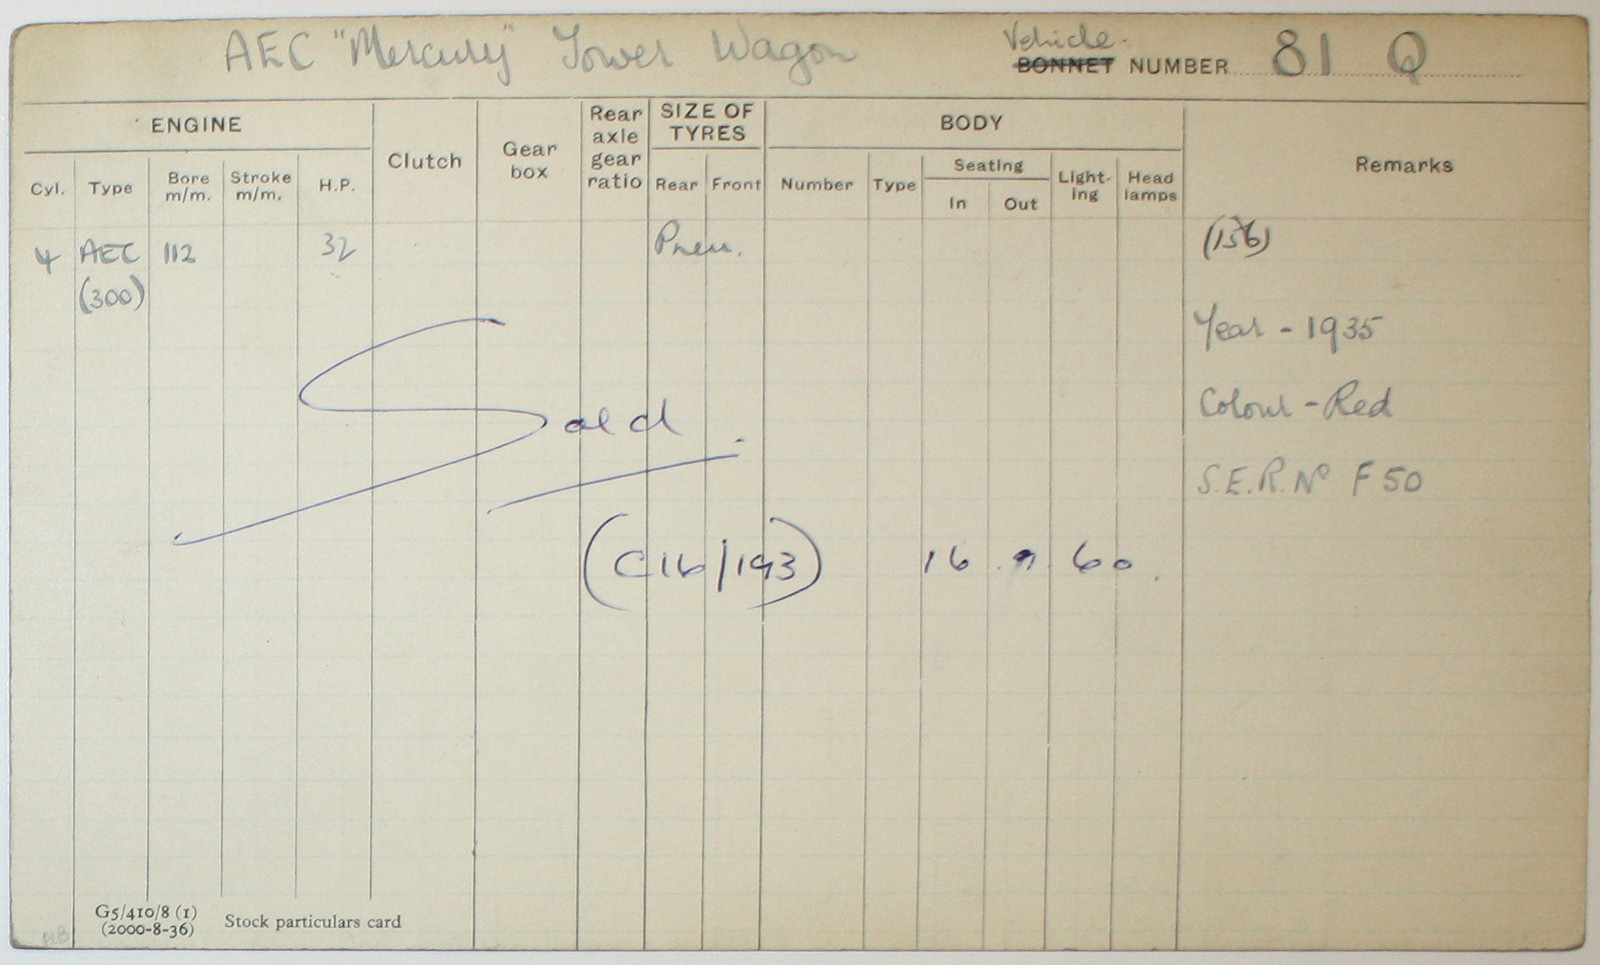 AEC "Mercury" Tower Wagon
Vehicle.
BONNET NUMBER 81 Q
ENGINE
Clutch
Gear box
Rear axle gear ratio
SIZE OF TYRES
BODY
Remarks
Cyl. Type Bore m/m. Stroke m/m. H.P.
Rear Front
Number Type Seating In Out Light-ing Head lamps
4 AEC 112 32 Pneu. (156)
(300)
Year - 1935
Colour - Red
S.E.R. No F 50
Sold
(C16/193) 16. 9. 60.
G5/410/8 (1)
(2000-8-36) Stock particulars card